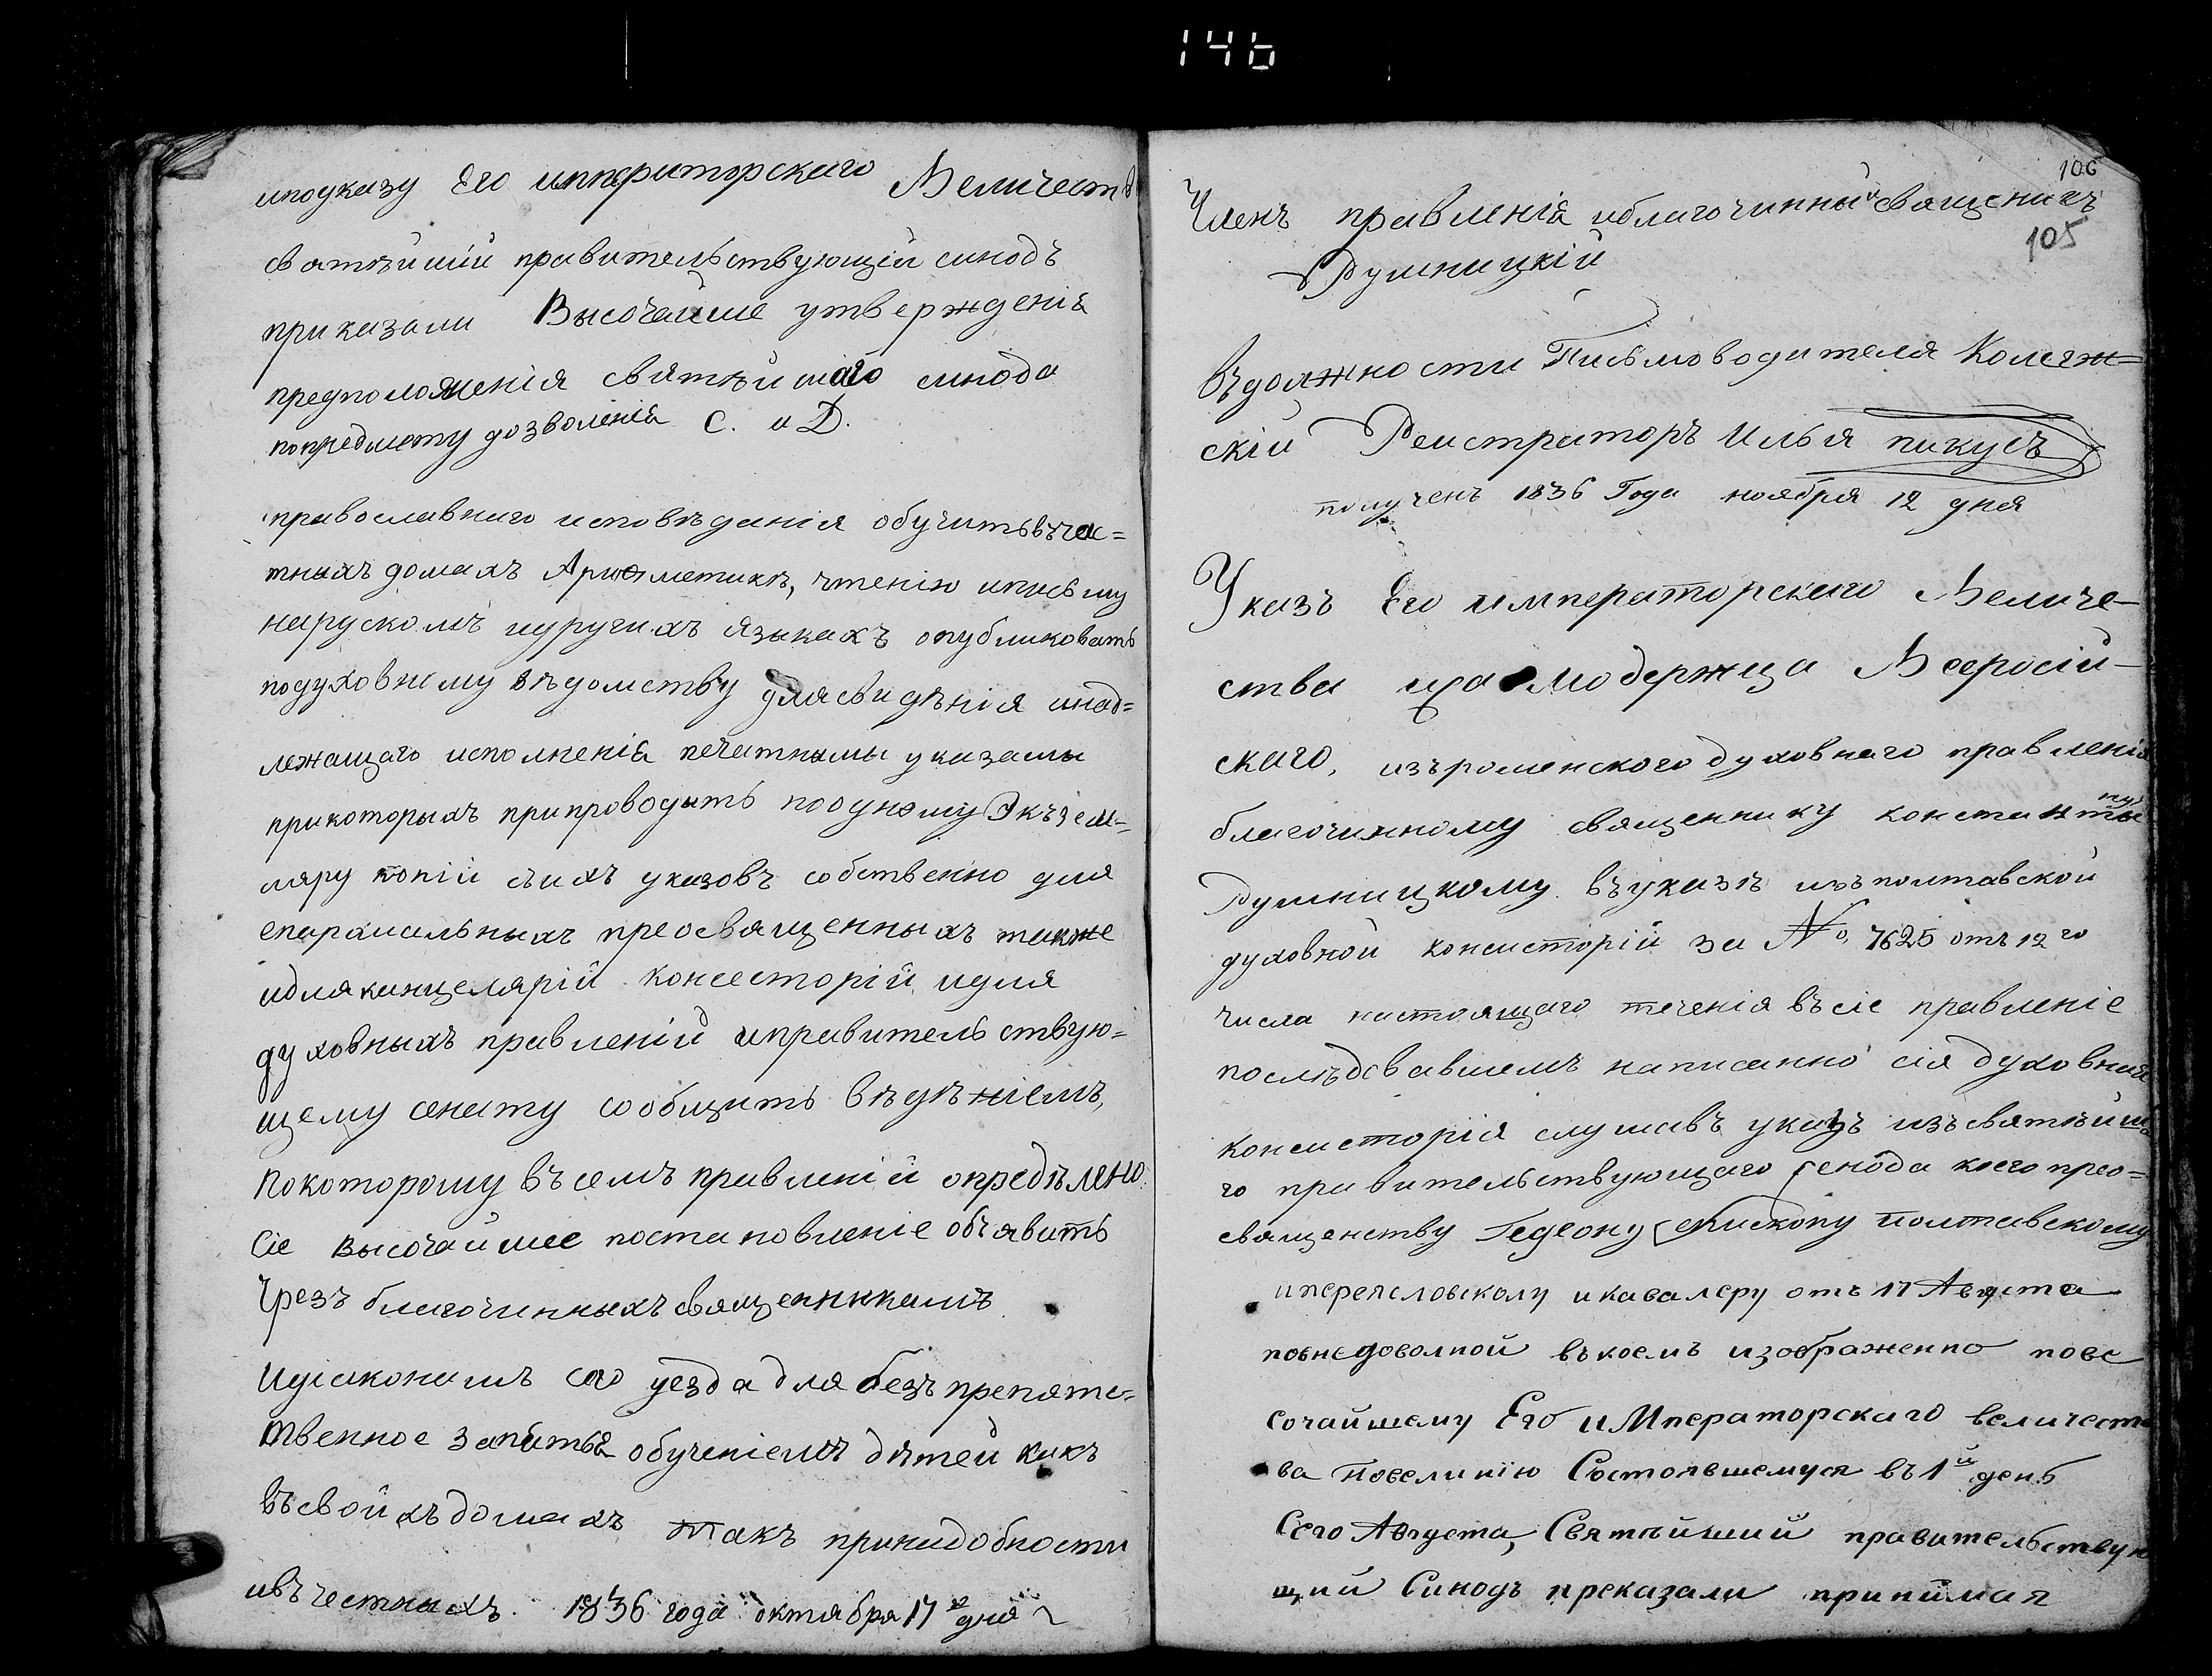 146
иподказу Его император­скаго Величеств
святѣйшій правительствующій синодъ
приказали Высочайше утвержденія
предположенія святѣйшаго синода
попредмету дозволенія С. и Д.
православнаго исповѣданія обучитьвъчас=
тныхъ домахъ Ариѳметикѣ, чтенію иписьму
нарускомъ идругихъ языкахъ опубликовать
подуховному вѣдомству длясвидѣнія инад=
лежащаго исполненія печатнымы указамы
прикоторыхъ припроводить поодному Экъзем=
ляру копій сихъ указовъ собственно для
епархиальныхъ преосвященныхъ также
идляканцелярій консесторій идля
духовныхъ правленій иправительствую=
щему сенату сообщить вѣдѣніемъ,
Покоторому въсемъ правленій опредѣлено
Сіе высочайшее постановленіе объявить
Чрезъ благочинныхъсвященникамъ
Идіаконамъ сего уезда для безъпрепятс=
твенное занятья обученіемъ дѣтей какъ
Въсвойхъдомахъ такъ принадобности
ивъчестныхъ. 1836 года октября 17 дня
106
Членъ правленія иблагочинныйсвященикъ
105
Рушницкій
Въдолжности Письмоводителя Колеж=
скій Реистраторъ Илья пикусъ
полученъ 1836 Года ноября 12 дня
Указъ Его императорскаго Величе-
ства Самодержца Всеросій-
скаго, изъроменскогодуховнаго правленія
благочинному священнику констант
Рушницкому въуказѣ изъполтавской
духовной консисторій за No 7625 отъ 12го
числа настоящаго теченія въсіе правленіе
послѣдовавшемъ написанно сія духовная
консисторія слушавъ указъ изъсвятѣйша
го правительствующаго сенода коегопрео=
священству Гедеону епископу полтавскому
ипереясловскому икавалеру отъ 17 Августа
въкоемъ изображенно повс
сочайшему Его иМператорскаго величест
ва Повелинію Состоявшемуся въ1й день
Сего Августа, Святѣйший правительствую
щий Синодъ преказали принимая